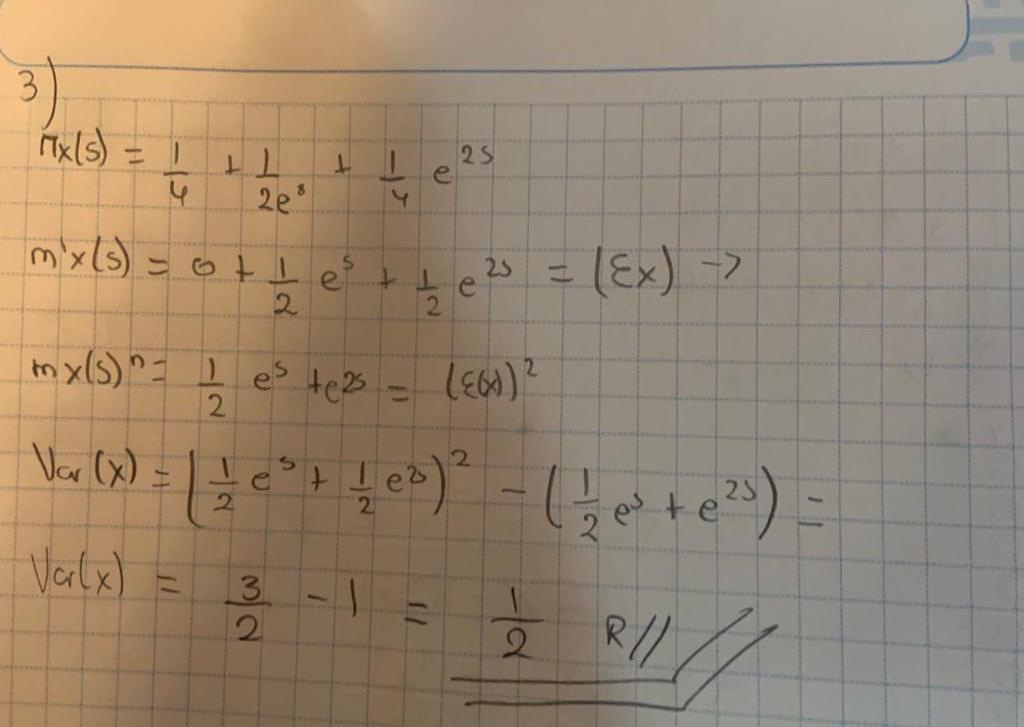 3)
Mx(s) = 1/4 + 1/2e^s + 1/4 e^2s
m'x(s) = 0 + 1/2 e^s + 1/2 e^2s = (Ex) →
mx(s)" = 1/2 e^s + e^2s = (E(x))^2
Var(x) = (1/2 e^s + 1/2 e^2s)^2 - (1/2 e^s + e^2s) =
Var(x) = 3/2 - 1 = 1/2 R//